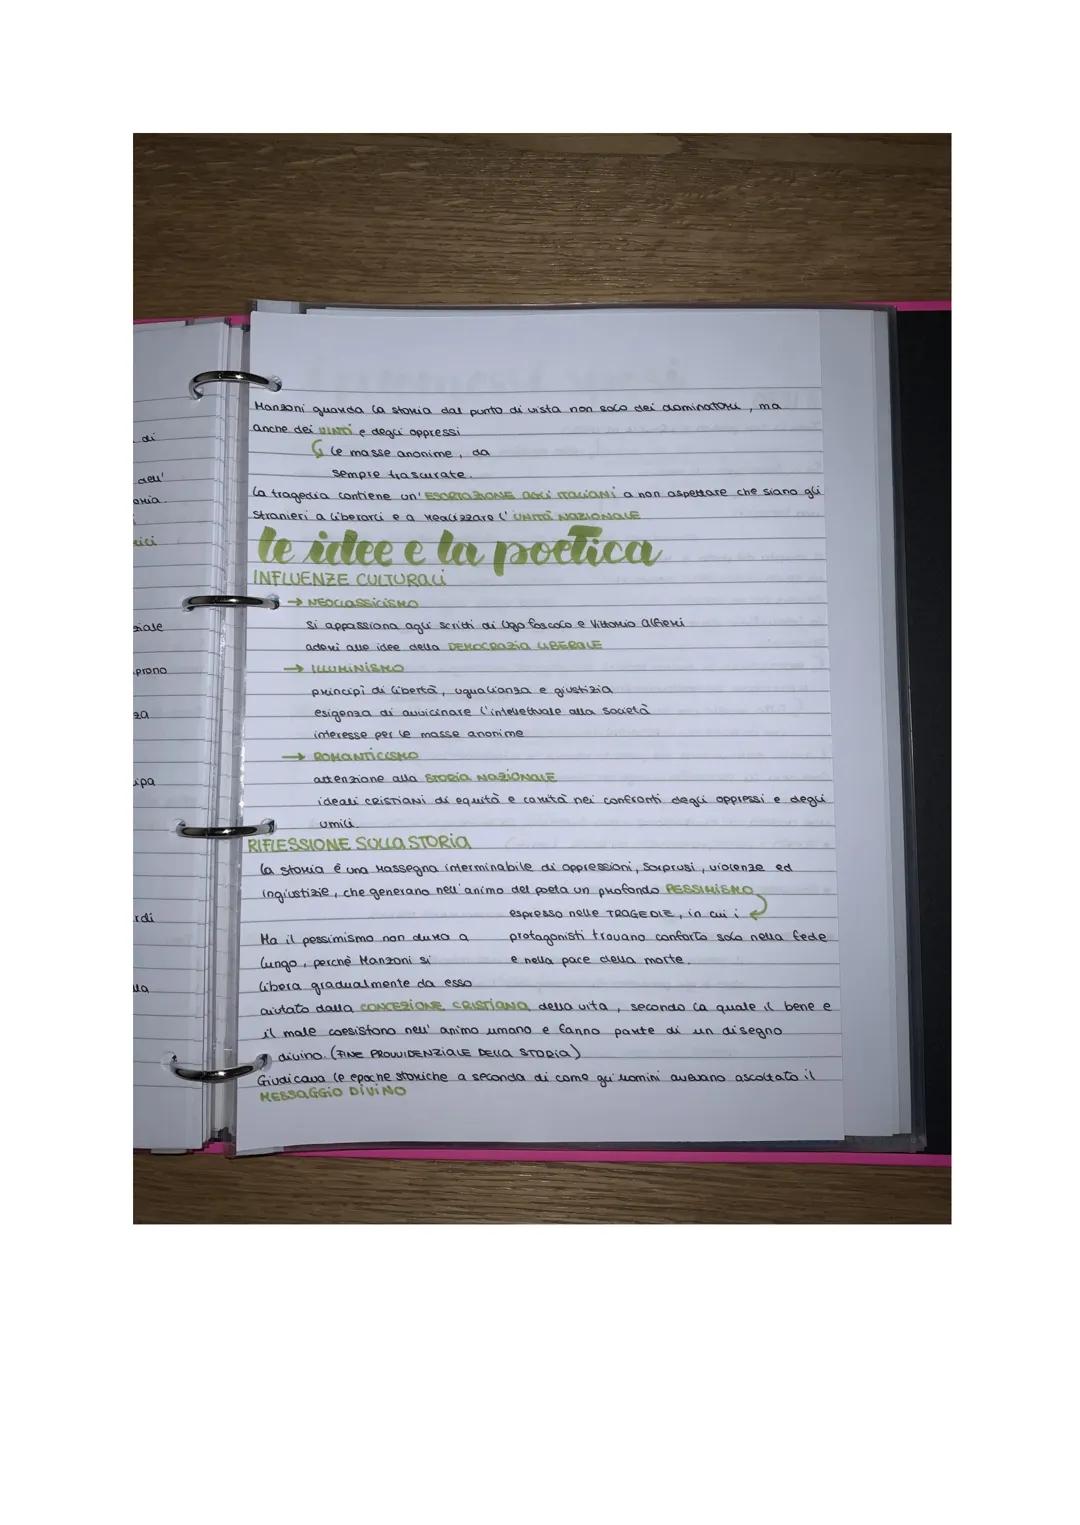 Manzoni guarda la storia dal punto di vista non solo dei dominatori, ma
anche dei VINTI e degli oppressi
le masse anonime, da
sempre trascurate.
La tragedia contiene un' ESORTAZIONE AGLI ITALIANI a non aspettare che siano gli
stranieri a liberarci e a realizzare l' UNITÀ NAZIONALE
le idee e la poetica
INFLUENZE CULTURALI
→ NEOCLASSICISMO
Si appassiona agli scritti di Ugo Foscolo e Vittorio Alfieri
aderì alle idee della DEMOCRAZIA LIBERALE
→ ILLUMINISMO
principi di libertà, uguaglianza e giustizia
esigenza di avvicinare l'intellettuale alla società
interesse per le masse anonime
→ ROMANTICISMO
attenzione alla STORIA NAZIONALE
ideali CRISTIANI di equità e carità nei confronti degli oppressi e degli
umili.
RIFLESSIONE SULLA STORIA
La storia è una rassegna interminabile di oppressioni, soprusi, violenze ed
ingiustizie, che generano nell'animo del poeta un profondo PESSIMISMO
espresso nelle TRAGEDIE, in cui i
protagonisti trovano conforto solo nella fede
e nella pace della morte.
Ma il pessimismo non dura a
lungo, perchè Manzoni si
libera gradualmente da esso
aiutato dalla CONCEZIONE CRISTIANA della vita, secondo la quale il bene e
il male coesistono nell' animo umano e fanno parte di un disegno
divino. (FINE PROVVIDENZIALE DELLA STORIA)
Giudicava le epoche storiche a seconda di come gli uomini avevano ascoltato il
MESSAGGIO DIVINO
di
dell'
oria.
rici
ziale
prono
za
ipa
rdi
lla